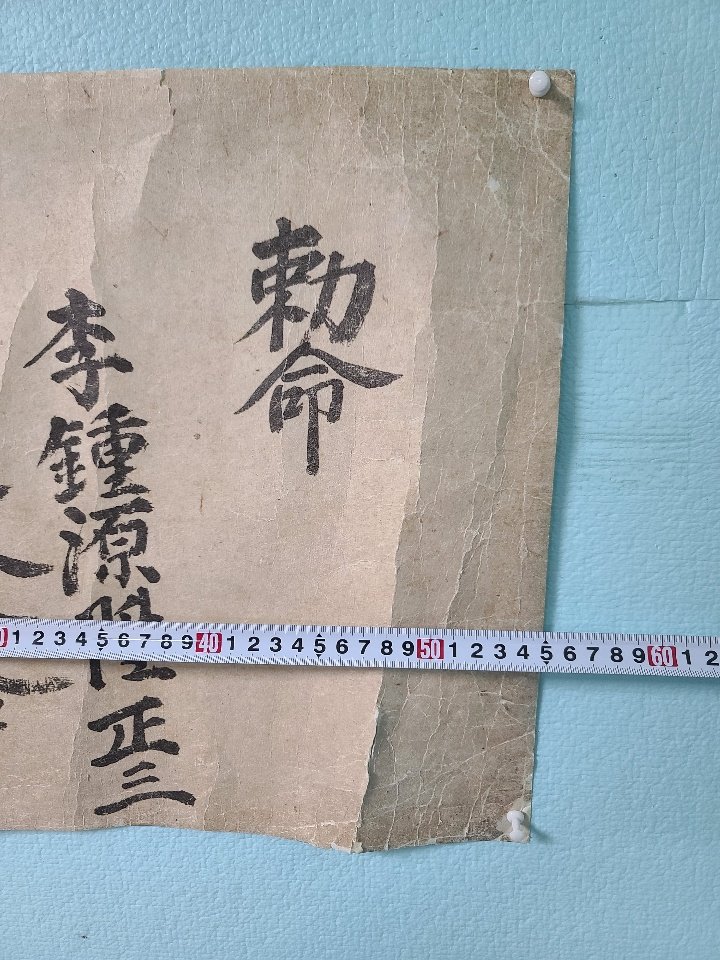 勅命
李鍾源陞正三
1 2 3 4 5 6 7 8 9 40 1 2 3 4 5 6 7 8 9 50 1 2 3 4 5 6 7 8 9 60 1 2